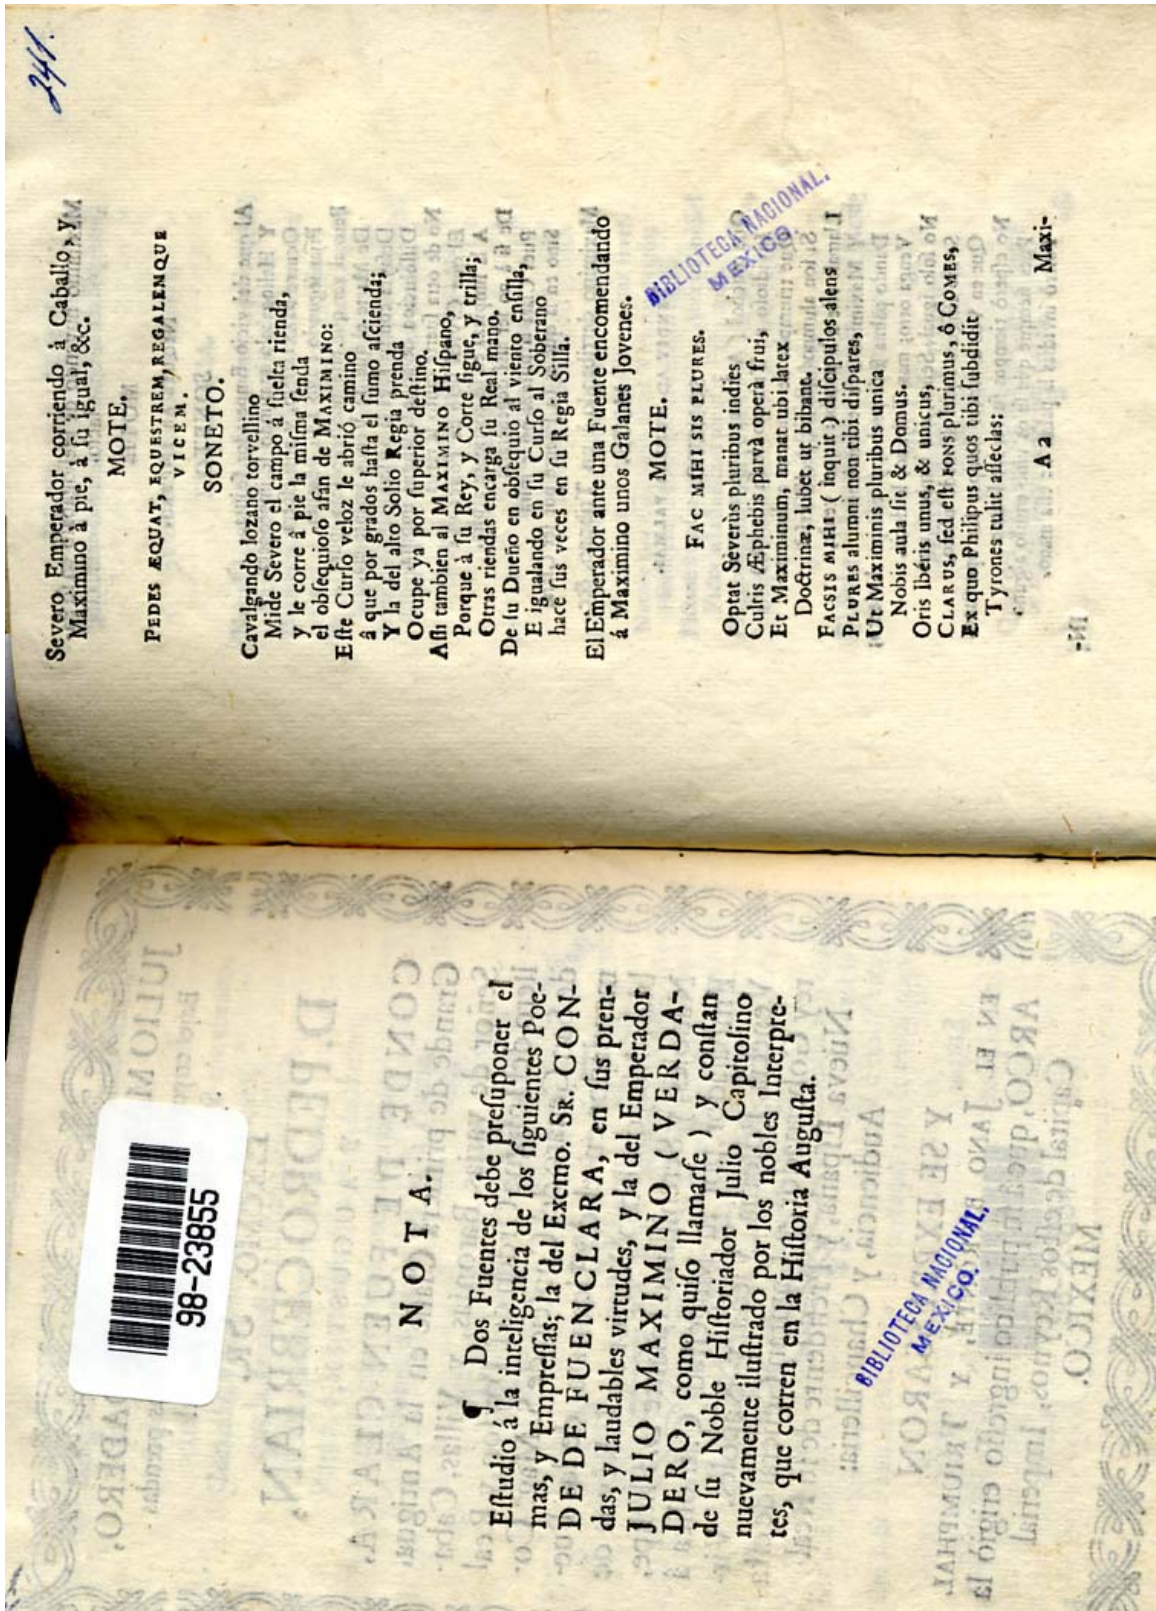 98-23855
NOTA.
¶ Dos Fuentes debe preſuponer el
Eſtudio á la inteligencia de los ſiguientes Poe-
mas, y Empreſſas; la del Excmo. Sr. CON-
DE DE FUENCLARA, en ſus pren-
das, y laudables virtudes, y la del Emperador
JULIO MAXIMINO ( VERDA-
DERO, como quiſo llamarſe ) y conſtan
de ſu Noble Hiſtoriador Julio Capitolino
nuevamente iluſtrado por los nobles Interpre-
tes, que corren en la Hiſtoria Auguſta.
BIBLIOTECA NACIONAL.
MEXICO.
241.
Severo Emperador corriendo à Caballo, y
Maximino à pie, à ſu igual, &c.
MOTE.
PEDES ÆQUAT, EQUESTREM, REGALEMQUE
VICEM.
SONETO.
Cavalgando lozano torvellino
Mide Severo el campo á ſuelta rienda,
y le corre â pie la miſma ſenda
el obſequioſo afán de MAXIMINO:
Eſte Curſo veloz le abrió camino
â que por grados haſta el ſumo aſcienda;
Y la del alto Solio Regia prenda
Ocupe ya por ſuperior deſtino.
Aſſi tambien al MAXIMINO Hiſpano,
Porque à ſu Rey, y Corte ſigue, y trilla;
Otras riendas encarga ſu Real mano.
De ſu Dueño en obſequio al viento enſilla,
E igualando en ſu Curſo al Soberano
hace ſus veces en ſu Regia Silla.
El Emperador ante una Fuente encomendando
á Maximino unos Galanes Jovenes.
MOTE.
FAC MIHI SIS PLURES.
Optat Severùs pluribus indies
Cultis Æphebis parvà operâ frui,
Et Maximum, manat ubi latex
Doctrinæ, lubet ut bibant.
FACSIS MIHI ( inquit ) diſcipulos alens
PLURES alumni non tibi diſpares,
Ut Maximinis pluribus unica
Nobis aula ſit & Domus.
Oris libéris unus, & unicus,
CLARUS, ſed eſt FONS plurimus, ô COMES,
Ex quo Philipus quos tibi ſubdidit
Tyrones tulit aſſeclas:
A 2 Maxi-
BIBLIOTECA NACIONAL.
MEXICO.